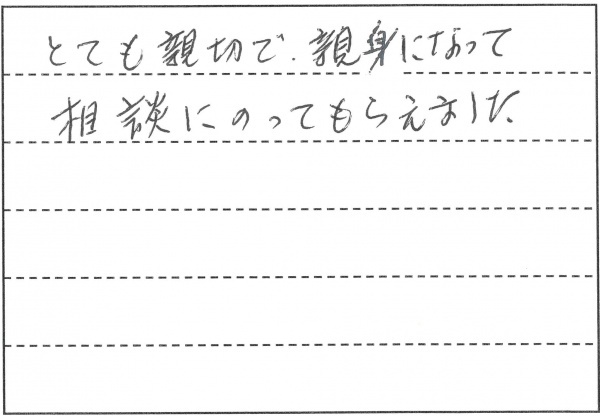 とても親切で、親身になって
相談にのってもらえました